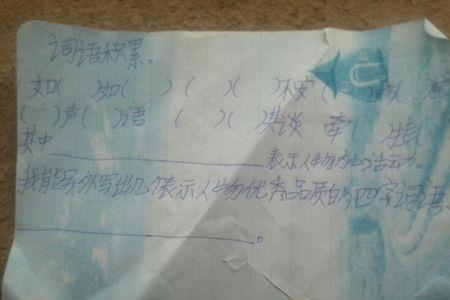 词语积累。
如( )如( ) ( )( )不安 (
( )声( )语 ( )( )其谈 牵( )挂(
其中____________表示人物内心活动。
我能另外写出几个表示人物优秀品质的四字词语
____________。